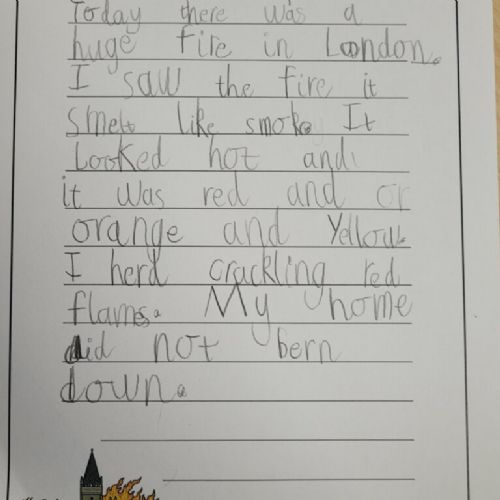 Today there was a
huge fire in London.
I saw the fire it
smelt like smoke It
Looked hot and
it was red and or
orange and yellow.
I herd crackling red
flames. My home
did not bern
down.